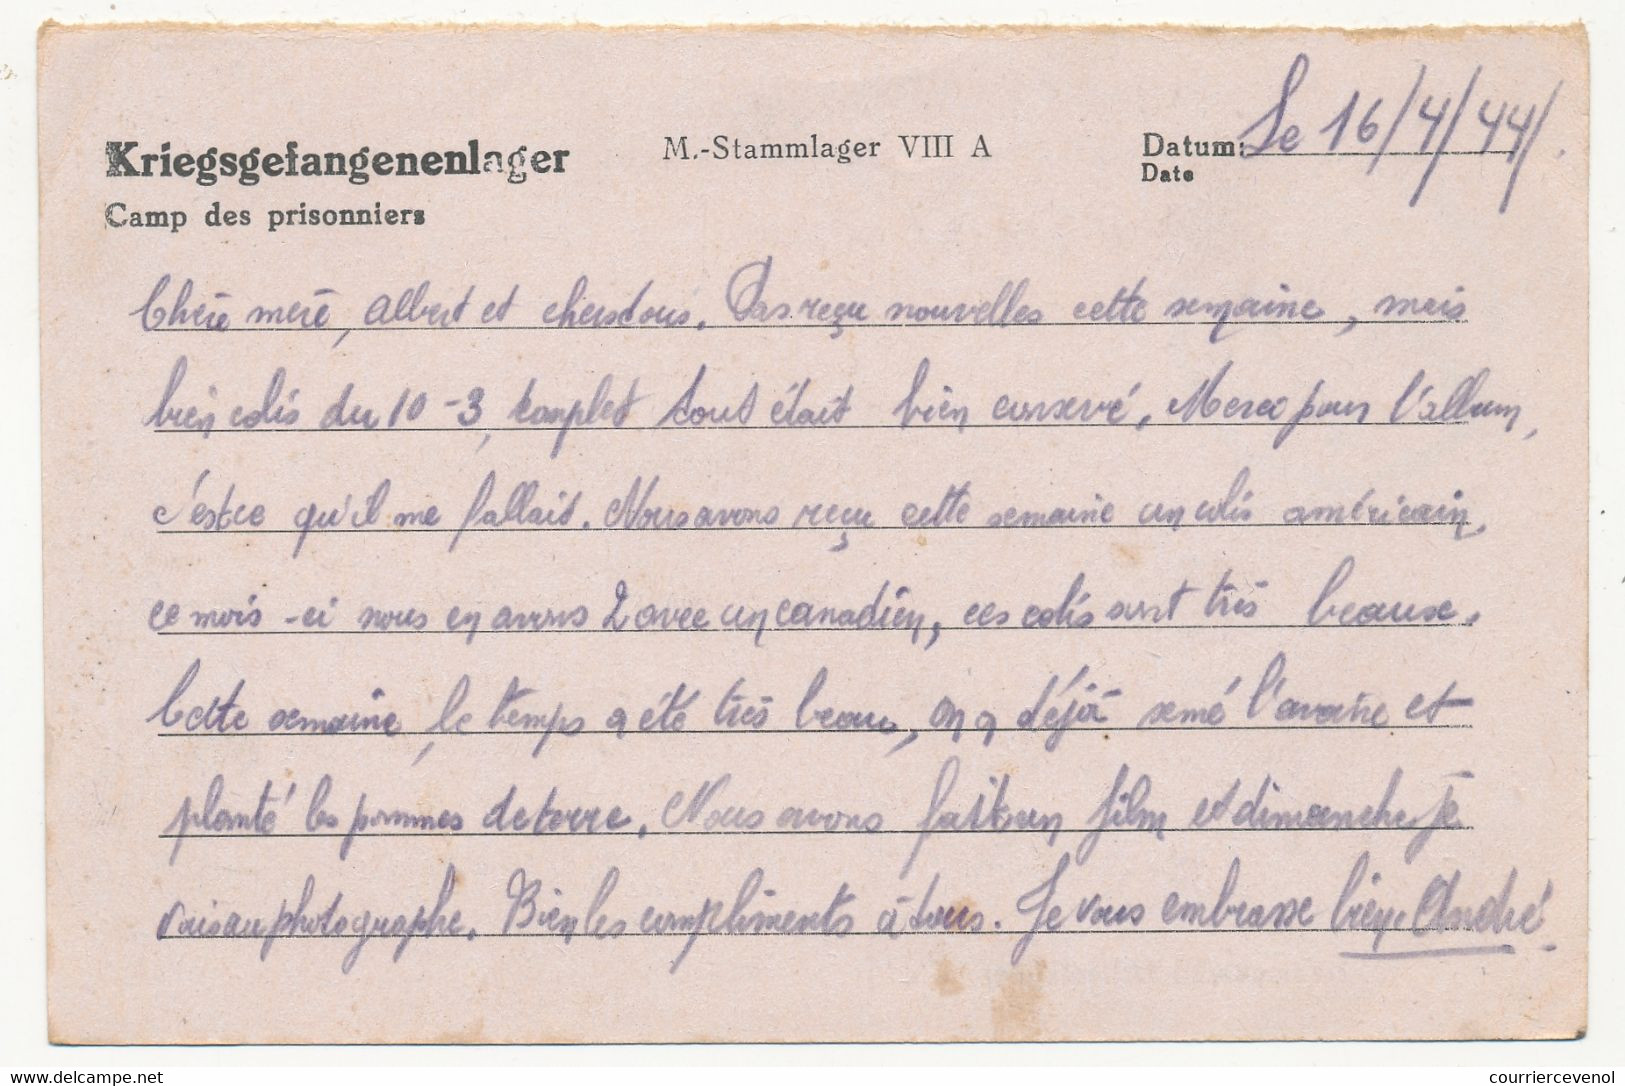 Kriegsgefangenenlager
Camp des prisonniers
M.-Stammlager VIII A
Datum: Le 16/4/44/.
Date
Chère mère, Albert et cherstous. Pas reçu nouvelles cette semaine, mais
bien colis du 10-3, complet tout était bien conservé. Merci pour l'allum,
c'est ce qu'il me fallait. Nous avons reçu cette semaine un colis américain,
ce mois-ci nous en avons 2 avec un canadien, ces colis sont très beaux.
Cette semaine, le temps a été très beau, on a déjà semé l'avoine et
planté les pommes de terre. Nous avons fait un film et dimanche je
vais au photographe. Bien les compliments à tous. Je vous embrasse bien. André
https://www.delcampe.net
courriercevenol